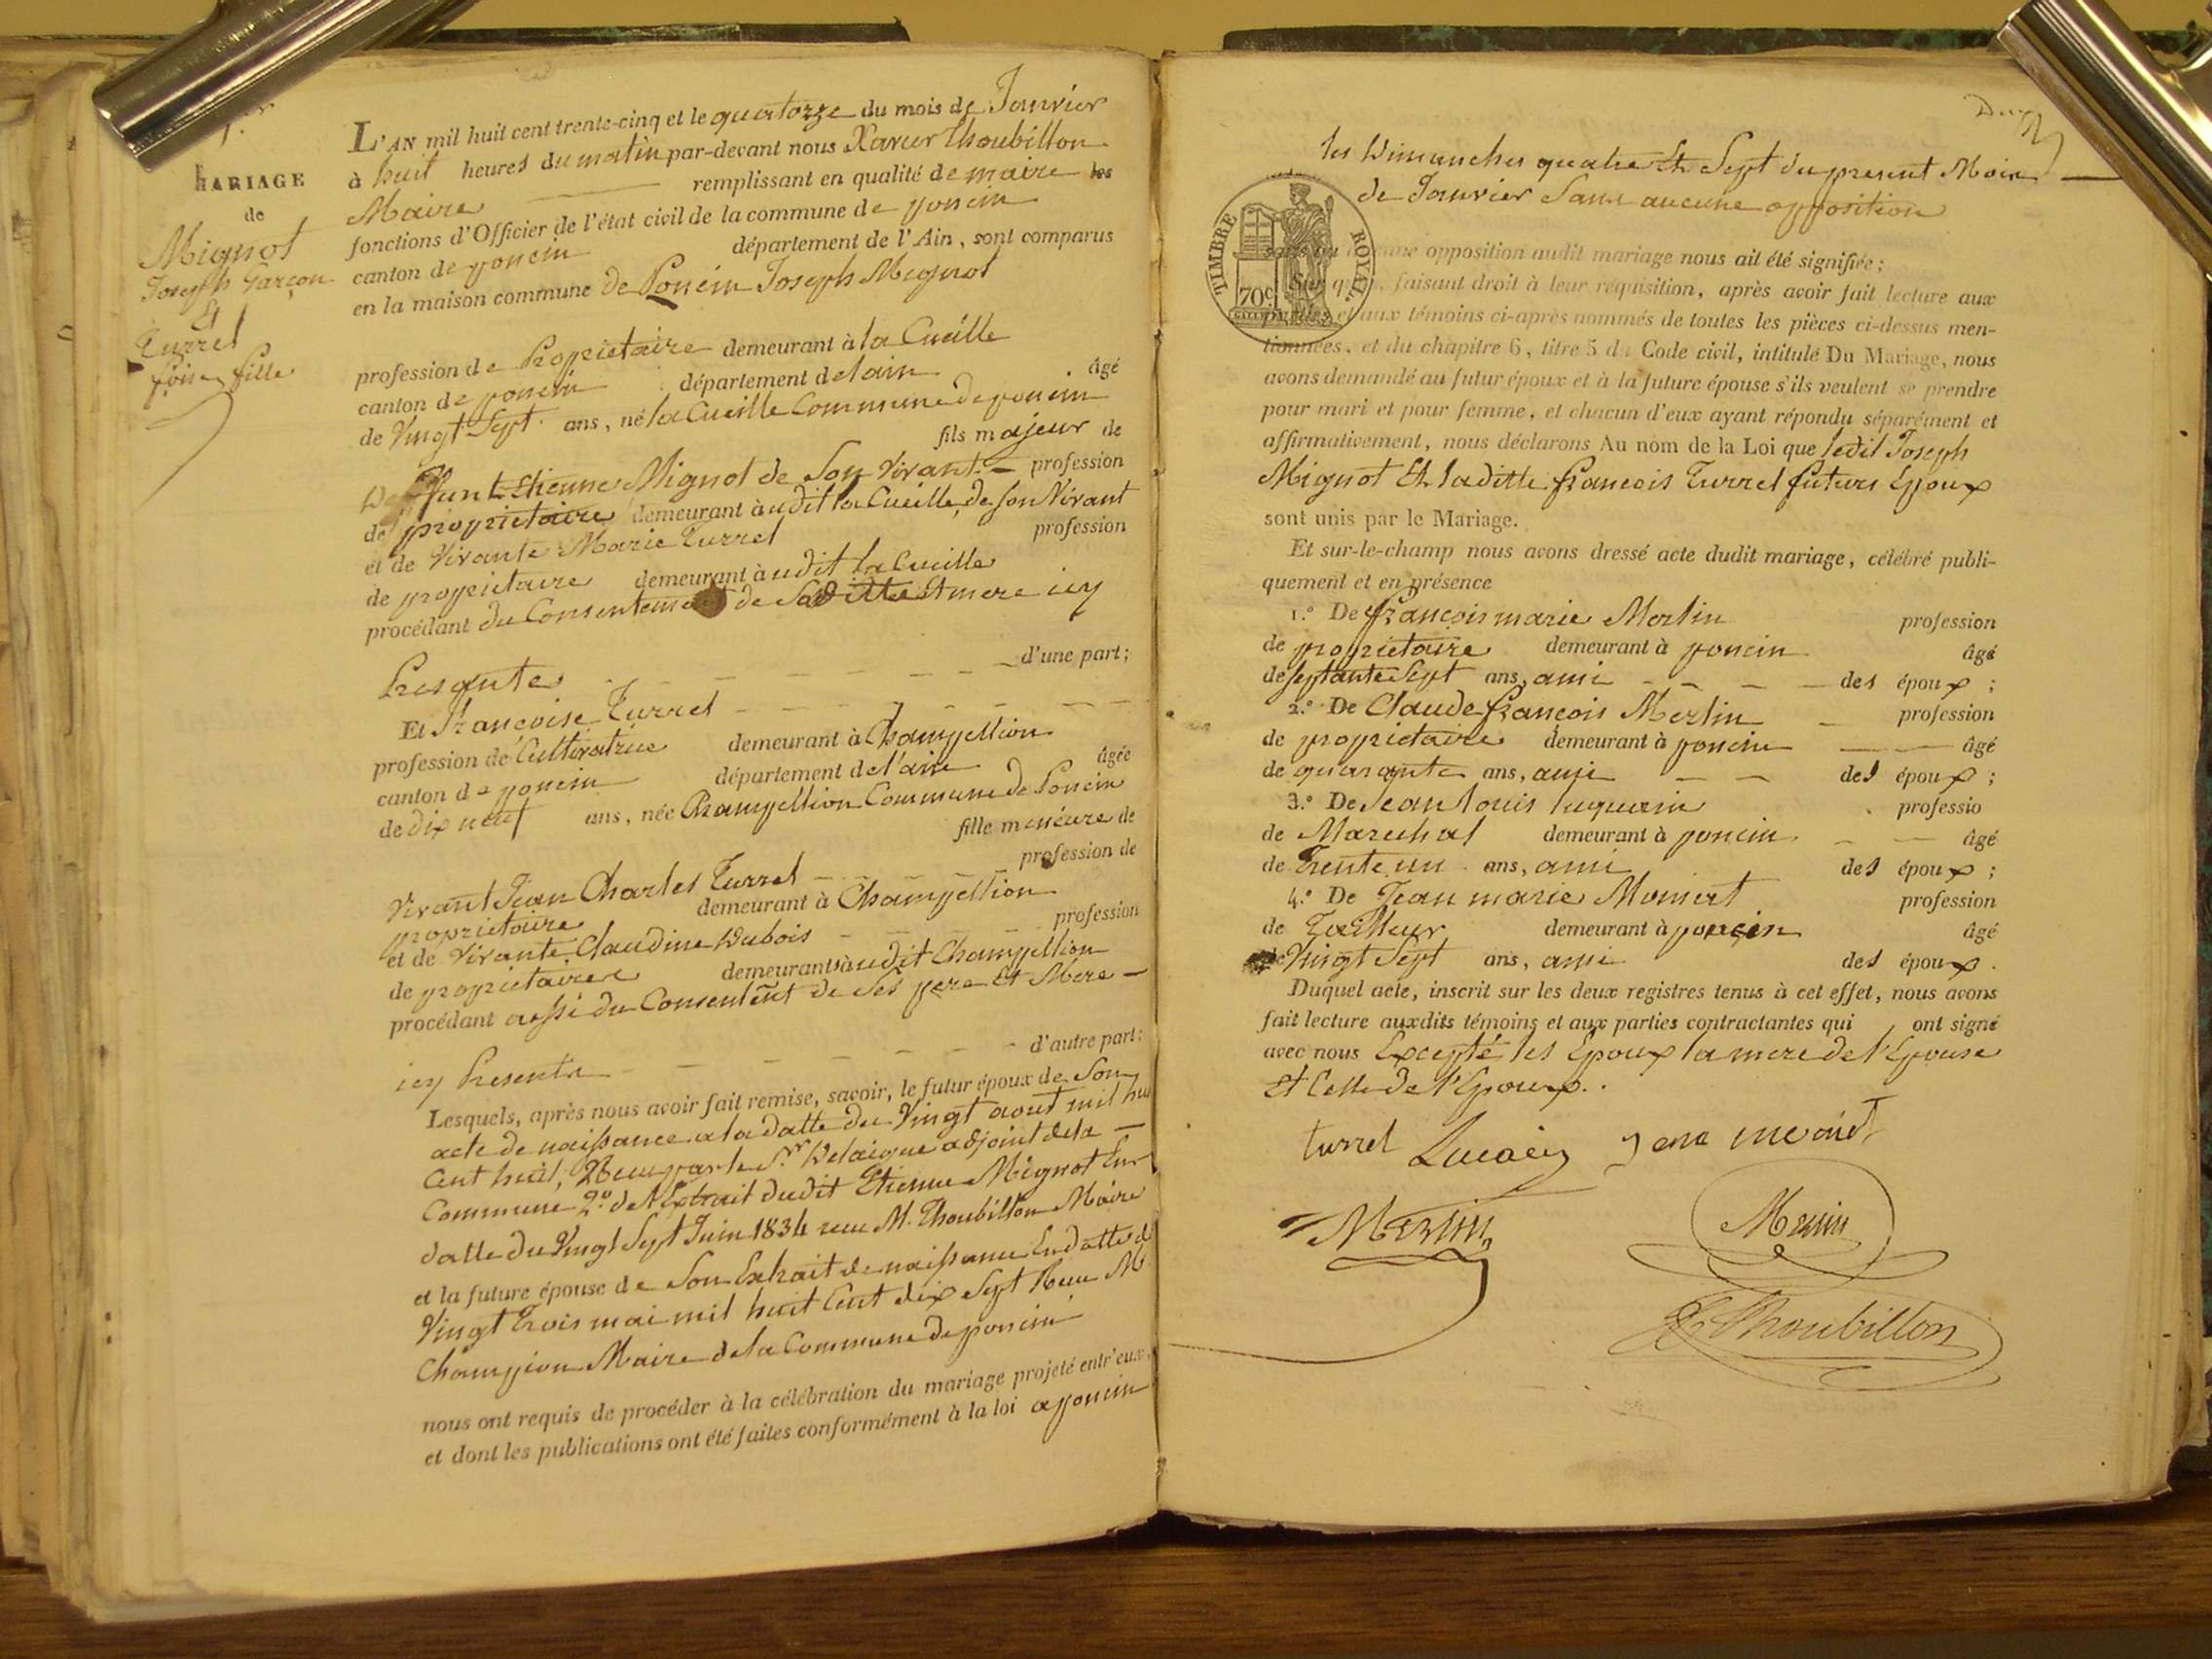 1.er
MARIAGE
de
Mignot
Joseph Garçon
et
Turrel
foise fille
L'AN mil huit cent trente-cinq et le quatorze du mois de Janvier
à huit heures du matin par-devant nous Xavier Thoubillon
Maire remplissant en qualité de maire les
fonctions d'Officier de l'état civil de la commune de poncin
canton de poncin département de l'Ain, sont comparus
en la maison commune de Poncin Joseph Mignot
profession de Propriétaire demeurant à la Cueille
canton de poncin département de lain âgé
de Vingt Sept ans, né la Cueille Commune de poncin
fils majeur de
Deffunt Etienne Mignot de Son Vivant profession
de propriétaire demeurant audit la Cueille, de son Vivant
et de Vivante Marie Turrel profession
de propriétaire demeurant audit la Cueille
procédant du Consentement de Saditte mere icy
Presante d'une part;
Et Françoise Turrel
profession de Cultivatrice demeurant à Champellion
canton de poncin département de l'ain âgée
de dix neuf ans, née Champellion Commune de Poncin
fille meneure de
Vivant Jean Charles Turrel profession de
propriétaire demeurant à Champellion
et de Vivante Claudine Dubois profession
de propriétaires demeurants audit Champellion
procédant aussi du Consentent de Ses pere Et Mere
icy Presents d'autre part;
Lesquels, après nous avoir fait remise, savoir, le futur époux de Son
acte de naissance a la datte du Vingt aout mil huit
Cent huit, Recu par le Sr Delaigue adjoint de la
Commune 2.o de l'Extrait dudit Etienne Mignot En
datte du Vingt Sept Juin 1834 recu M. Thoubillon Maire
et la future épouse de Son Extrait de naissance En datte d
Vingt Trois mai mil huit Cent dix Sept Recu M.
Champion Maire de la Commune de poncin
nous ont requis de procéder à la célébration du mariage projeté entr'eux,
et dont les publications ont été faites conformément à la loi a poncin
les Dimanches quatre Et Sept du present Mois
de Janvier Sans aucune opposition
TIMBRE ROYAL
70c
aucune opposition audit mariage nous ait été signifiée;
Sur quoi, faisant droit à leur réquisition, après avoir fait lecture aux
parties et aux témoins ci-après nommés de toutes les pièces ci-dessus men-
tionnées, et du chapitre 6, titre 5 du Code civil, intitulé Du Mariage, nous
avons demandé au futur époux et à la future épouse s'ils veulent se prendre
pour mari et pour femme, et chacun d'eux ayant répondu séparément et
affirmativement, nous déclarons Au nom de la Loi que ledit Joseph
Mignot Et laditte françois Turrel futurs Epoux
sont unis par le Mariage.
Et sur-le-champ nous avons dressé acte dudit mariage, célébré publi-
quement et en présence
1.o De françois marie Merlin profession
de propriétaire demeurant à poncin âgé
de septante Sept ans, ami des époux;
2.o De Claude françois Merlin profession
de propriétaire demeurant à poncin âgé
de quarante ans, ami des époux;
3.o De Jean louis profession
de Marechal demeurant à poncin âgé
de Trente un ans, ami des époux;
4.o De Jean marie profession
de Tailleur demeurant à poncin âgé
de Vingt Sept ans, ami des époux.
Duquel acte, inscrit sur les deux registres tenus à cet effet, nous avons
fait lecture auxdits témoins et aux parties contractantes qui ont signé
avec nous Excepté les Epoux la mere de l'Epouse
Et Celle de l'Epoux.
turrel
Merlin Merlin
Thoubillon